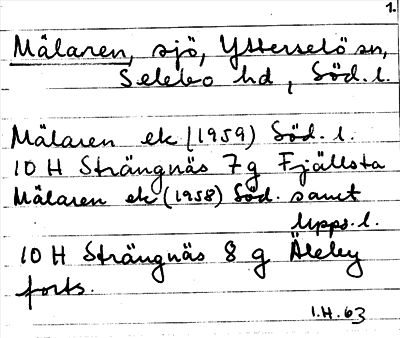 1.
Mälaren, sjö, Ytterselö sn,
Selebo hd, Söd. l.
Mälaren ek (1959) Söd. l.
10 H Strängnäs 7 g Fjällsta
Mälaren ek (1958) Söd. samt
Upps. l.
10 H Strängnäs 8 g Äleby
forts.
I.H. 63